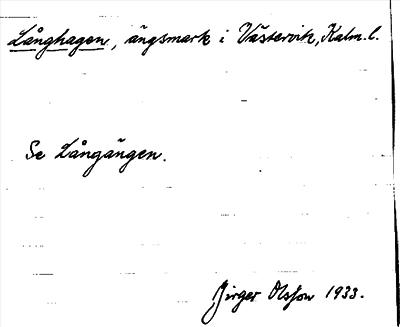 Långhagen, ängsmark i Västervik, Kalm. l.
Se Långängen.
Birger Olsson 1933.